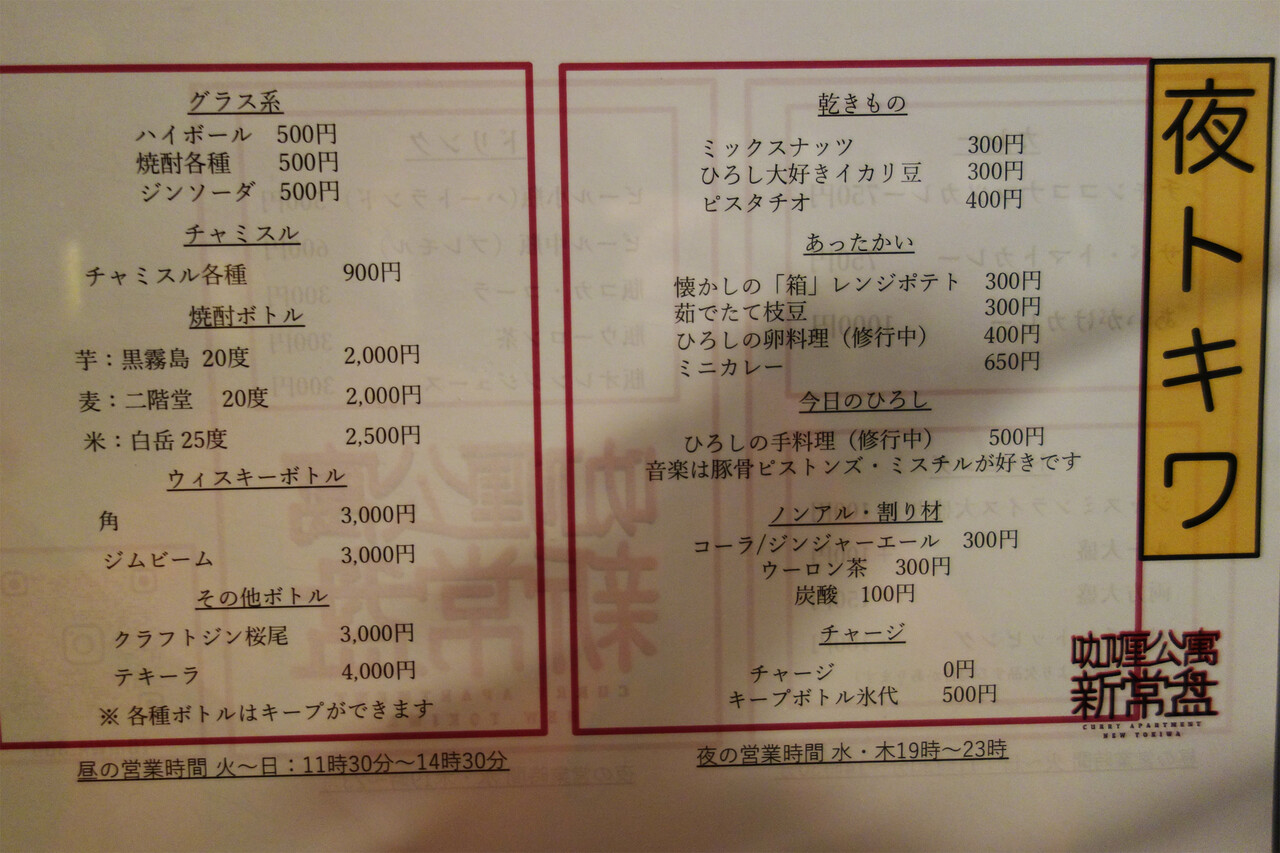 夜トキワ
グラス系
ハイボール 500円
焼酎各種 500円
ジンソーダ 500円
チャミスル
チャミスル各種 900円
焼酎ボトル
芋：黒霧島 20度 2,000円
麦：二階堂 20度 2,000円
米：白岳 25度 2,500円
ウィスキーボトル
角 3,000円
ジムビーム 3,000円
その他ボトル
クラフトジン桜尾 3,000円
テキーラ 4,000円
※ 各種ボトルはキープができます
昼の営業時間 火〜日：11時30分〜14時30分
乾きもの
ミックスナッツ 300円
ひろし大好きイカリ豆 300円
ピスタチオ 400円
あったかい
懐かしの「箱」レンジポテト 300円
茹でたて枝豆 300円
ひろしの卵料理（修行中） 400円
ミニカレー 650円
今日のひろし
ひろしの手料理（修行中） 500円
音楽は豚骨ピストンズ・ミスチルが好きです
ノンアル・割り材
コーラ/ジンジャーエール 300円
ウーロン茶 300円
炭酸 100円
チャージ
チャージ 0円
キープボトル氷代 500円
夜の営業時間 水・木19時〜23時
咖喱公寓
新常盤
CURRY APARTMENT
NEW TOKIWA